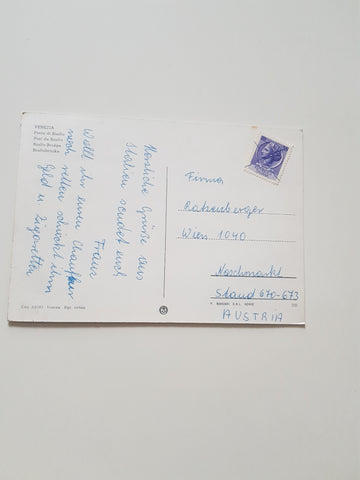 VENEZIA
Ponte di Rialto
Pont du Rialto
Rialto Bridge
Rialtobrücke
Herzliche Grüße aus
Italien sendet euch
Franz
Wollt ihr euren Chauffeur
noch retten schickt ihm
Geld u Zigaretten
Firma
Ratzenberger
Wien 1040
Naschmarkt
Stand 670-673
AUSTRIA